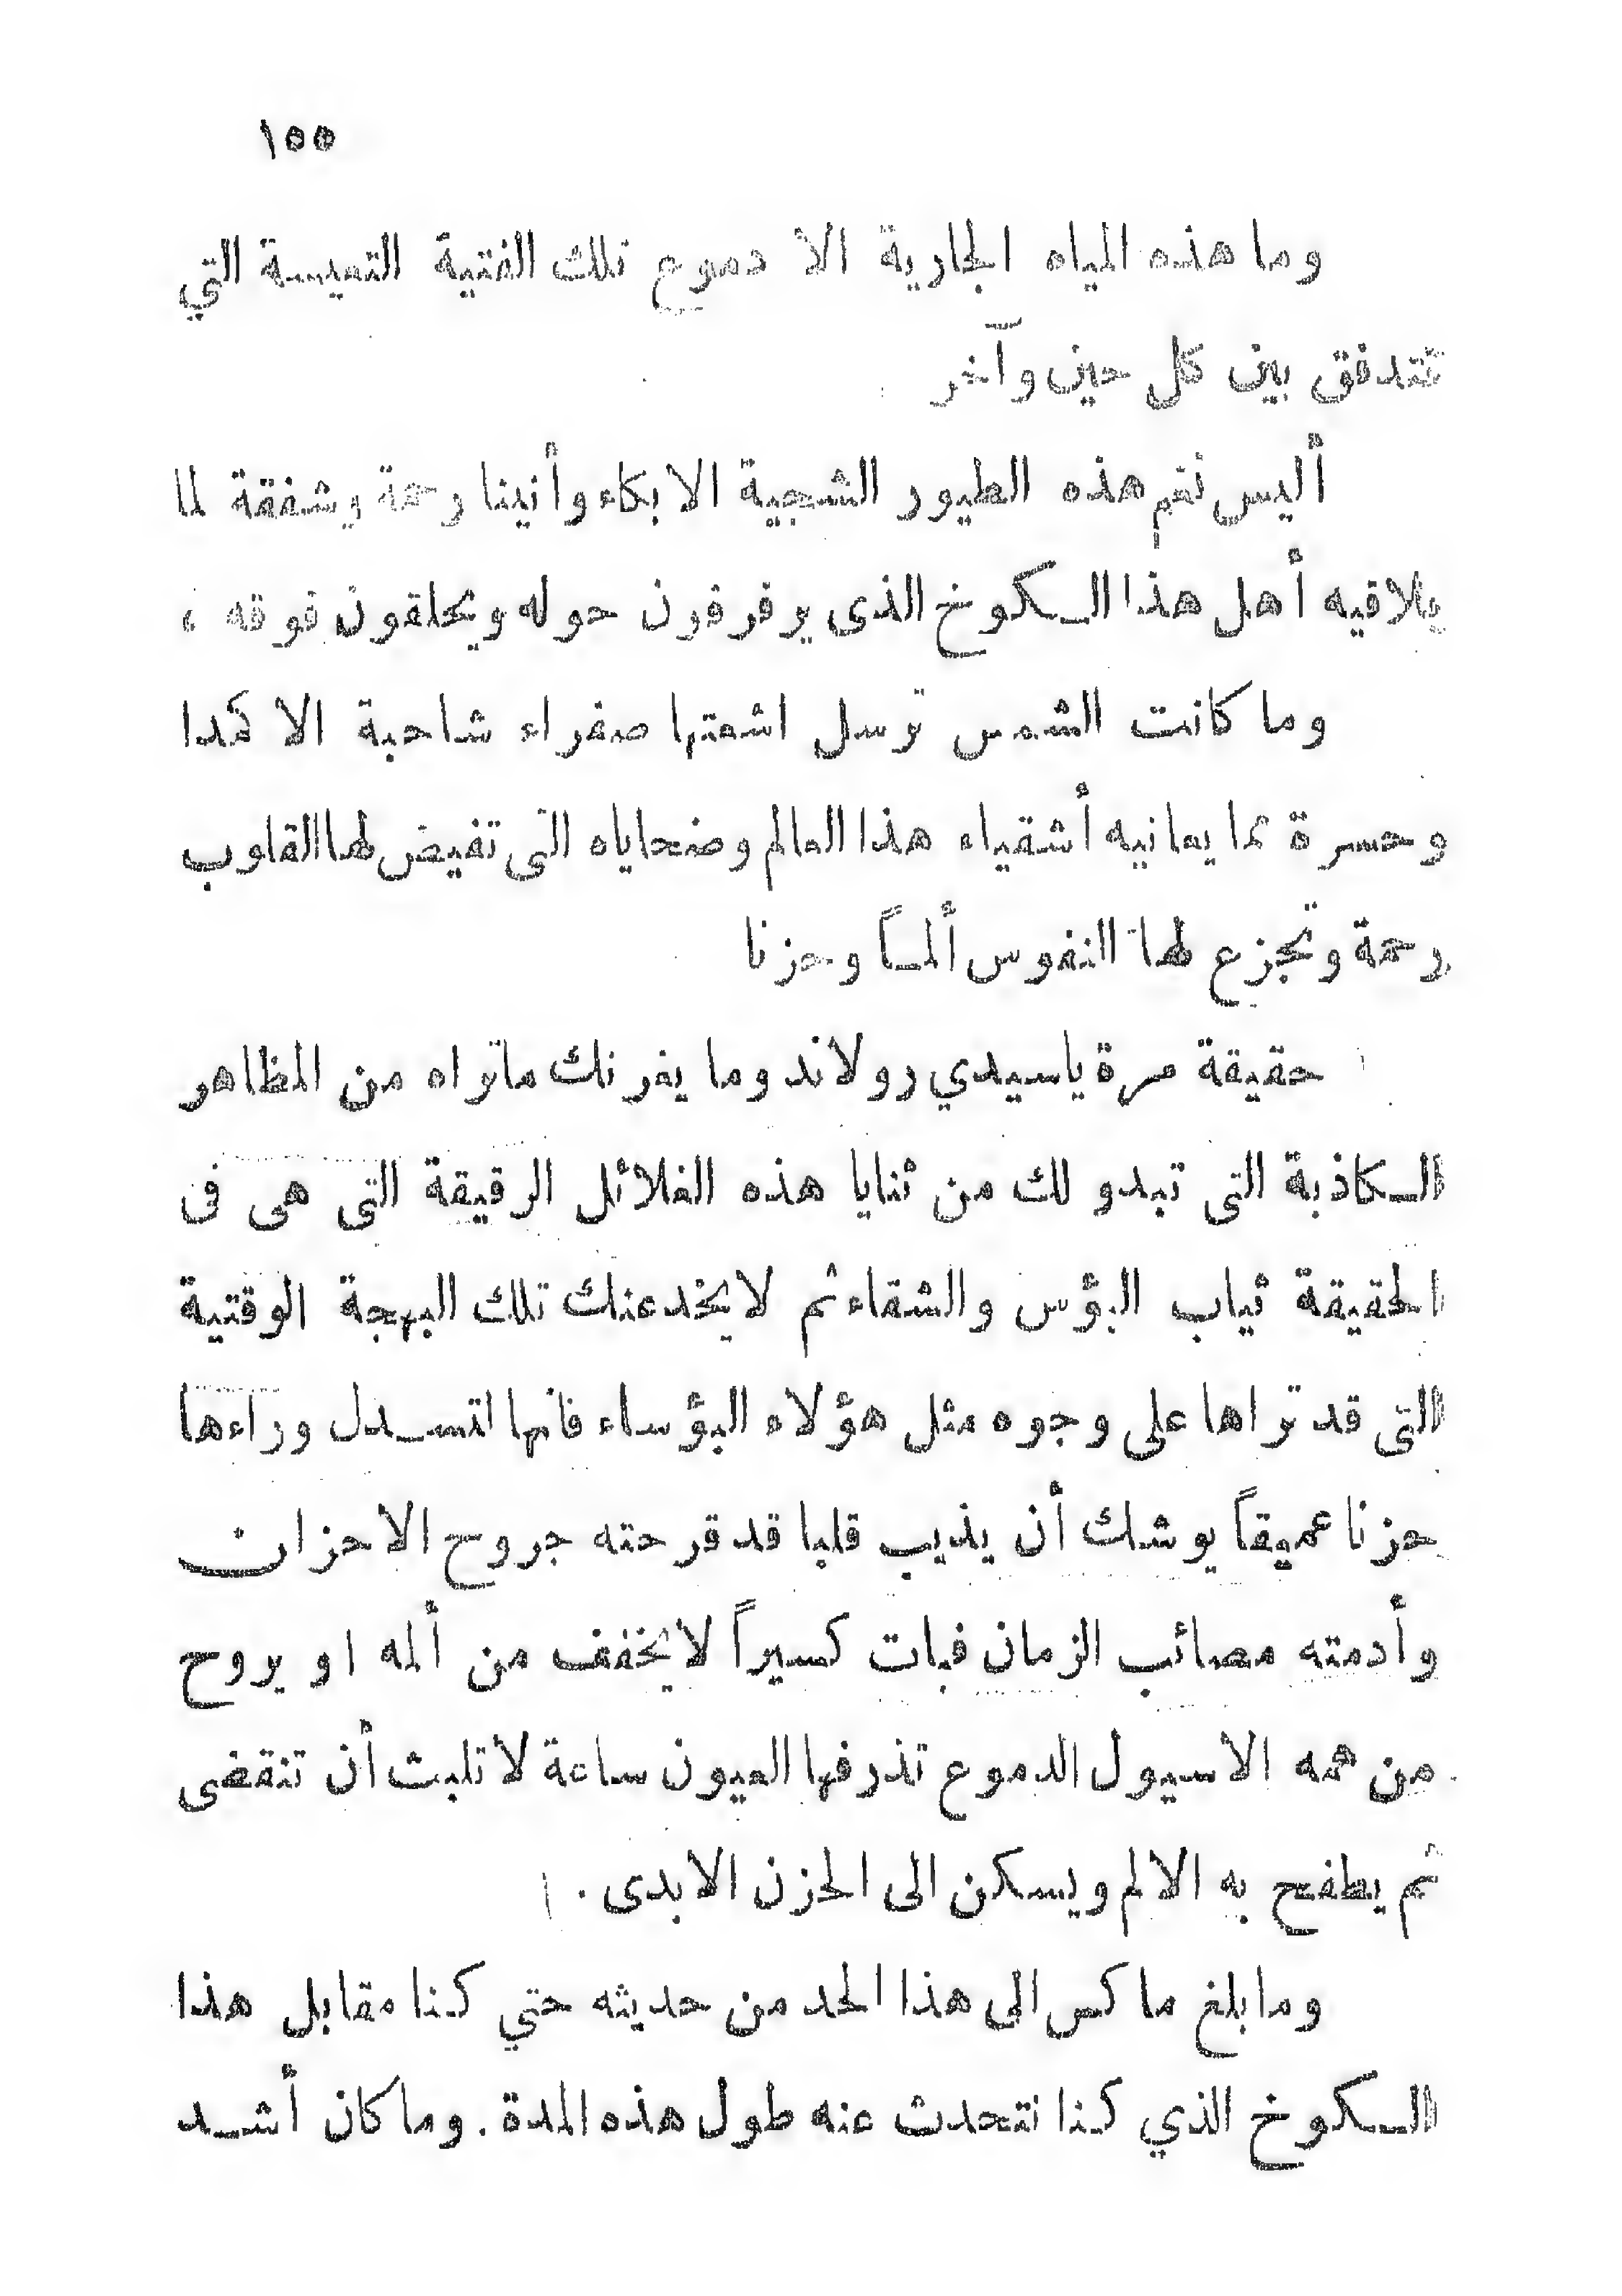 ١٥٥
وما هذه المياه الجارية الا دموع تلك الفتية التعيسة التي
تتدفق بين كل حين وآخر
أليس نغم هذه الطيور الشجية الا بكاء وأنينا رحمة وشفقة لما
يلاقيه أهل هذا الكوخ الذى يرفرفون حوله ويحلقون فوقه ،
وما كانت الشمس ترسل اشعتها صفراء شاحبة الا كمدا
وحسرة مما يعانيه أشقياء هذا العالم وضحاياه التى تفيض لها القلوب
رحمة وتجزع لها النفوس ألمـاً وحزنا
حقيقة مرة ياسيدي رولاند وما يغرنك ماتراه من المظاهر
الكاذبة التى تبدو لك من ثنايا هذه الغلائل الرقيقة التى هى فى
الحقيقة ثياب البؤس والشقاء ثم لا يخدعنك تلك البهجة الوقتية
التى قد تراها على وجوه مثل هؤلاء البؤساء فانها لتسـدل وراءها
حزنا عميقاً يوشك أن يذيب قلبا قد قرحته جروح الاحزان
وأدمته مصائب الزمان فبات كسيراً لا يخفف من ألمه او يروح
من همه الا سيول الدموع تذرفها العيون ساعة لا تلبث أن تنقضى
ثم يطفح به الالم ويسكن الى الحزن الابدى .
وما بلغ ماكس الى هذا الحد من حديثه حتي كنا مقابل هذا
الكوخ الذي كنا نتحدث عنه طول هذه المدة . وما كان أشـد